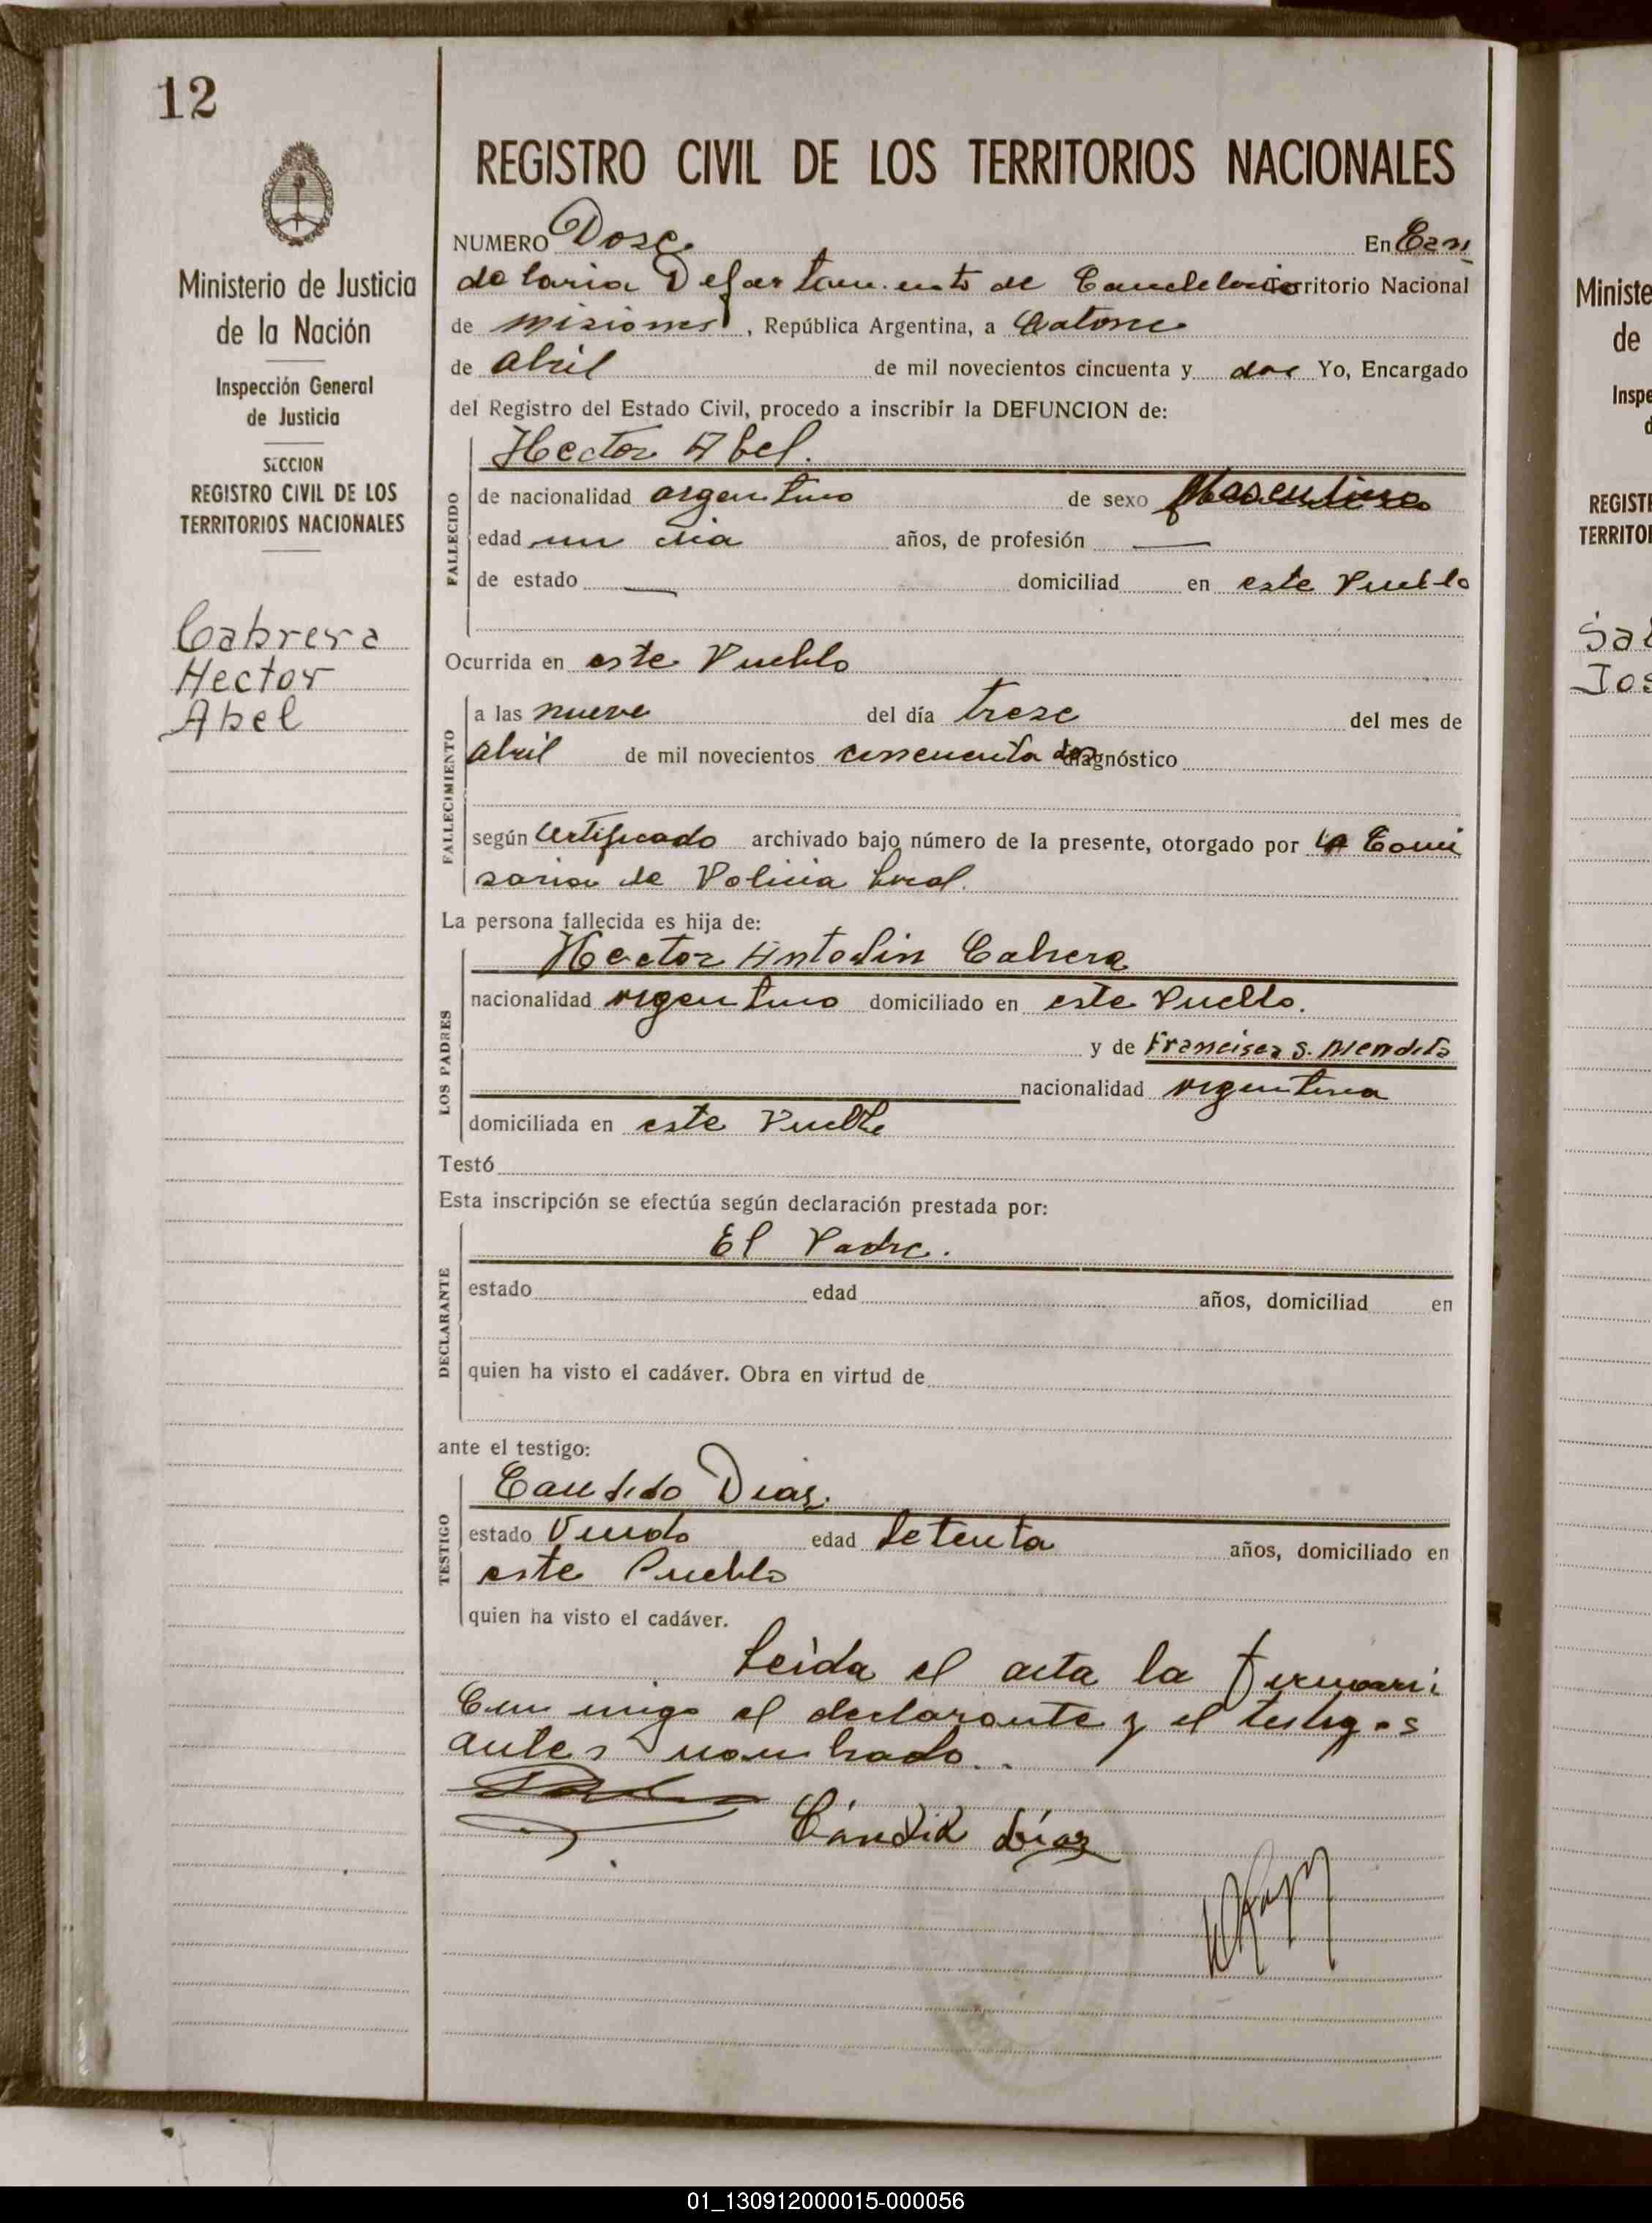 12
Ministerio de Justicia
de la Nación
Inspección General
de Justicia
SECCION
REGISTRO CIVIL DE LOS
TERRITORIOS NACIONALES
Cabrera
Hector
Abel
REGISTRO CIVIL DE LOS TERRITORIOS NACIONALES
NUMERO Dose En Can
delaria Departamento de Candelaria Territorio Nacional
de Misiones, República Argentina, a Catorse
de Abril de mil novecientos cincuenta y dos Yo, Encargado
del Registro del Estado Civil, procedo a inscribir la DEFUNCION de:
Hector Abel.
FALLECIDO
de nacionalidad argentino de sexo Masculino
edad un dia años, de profesión —
de estado — domiciliad en este Pueblo
Ocurrida en este Pueblo
FALLECIMIENTO
a las nueve del día trese del mes de
Abril de mil novecientos cincuenta dos diagnóstico
según Certificado archivado bajo número de la presente, otorgado por la Comi
saria de Policia Local.
La persona fallecida es hija de:
LOS PADRES
Hector Antolin Cabrera
nacionalidad argentino domiciliado en este Pueblo.
y de Francisca S. Mendita
nacionalidad argentina
domiciliada en este Pueblo
Testó
Esta inscripción se efectúa según declaración prestada por:
DECLARANTE
El Padre.
estado edad años, domiciliad en
quien ha visto el cadáver. Obra en virtud de
ante el testigo:
TESTIGO
Candido Dias.
estado Viudo edad Setenta años, domiciliado en
este Pueblo
quien ha visto el cadáver.
Leida el acta la firmaron
Con migo el declarante y el testigos
antes nombrado..
Cándido Díaz
Ministe
de
Inspe
d
REGISTR
TERRITOR
Sal
Jos
01_130912000015-000056